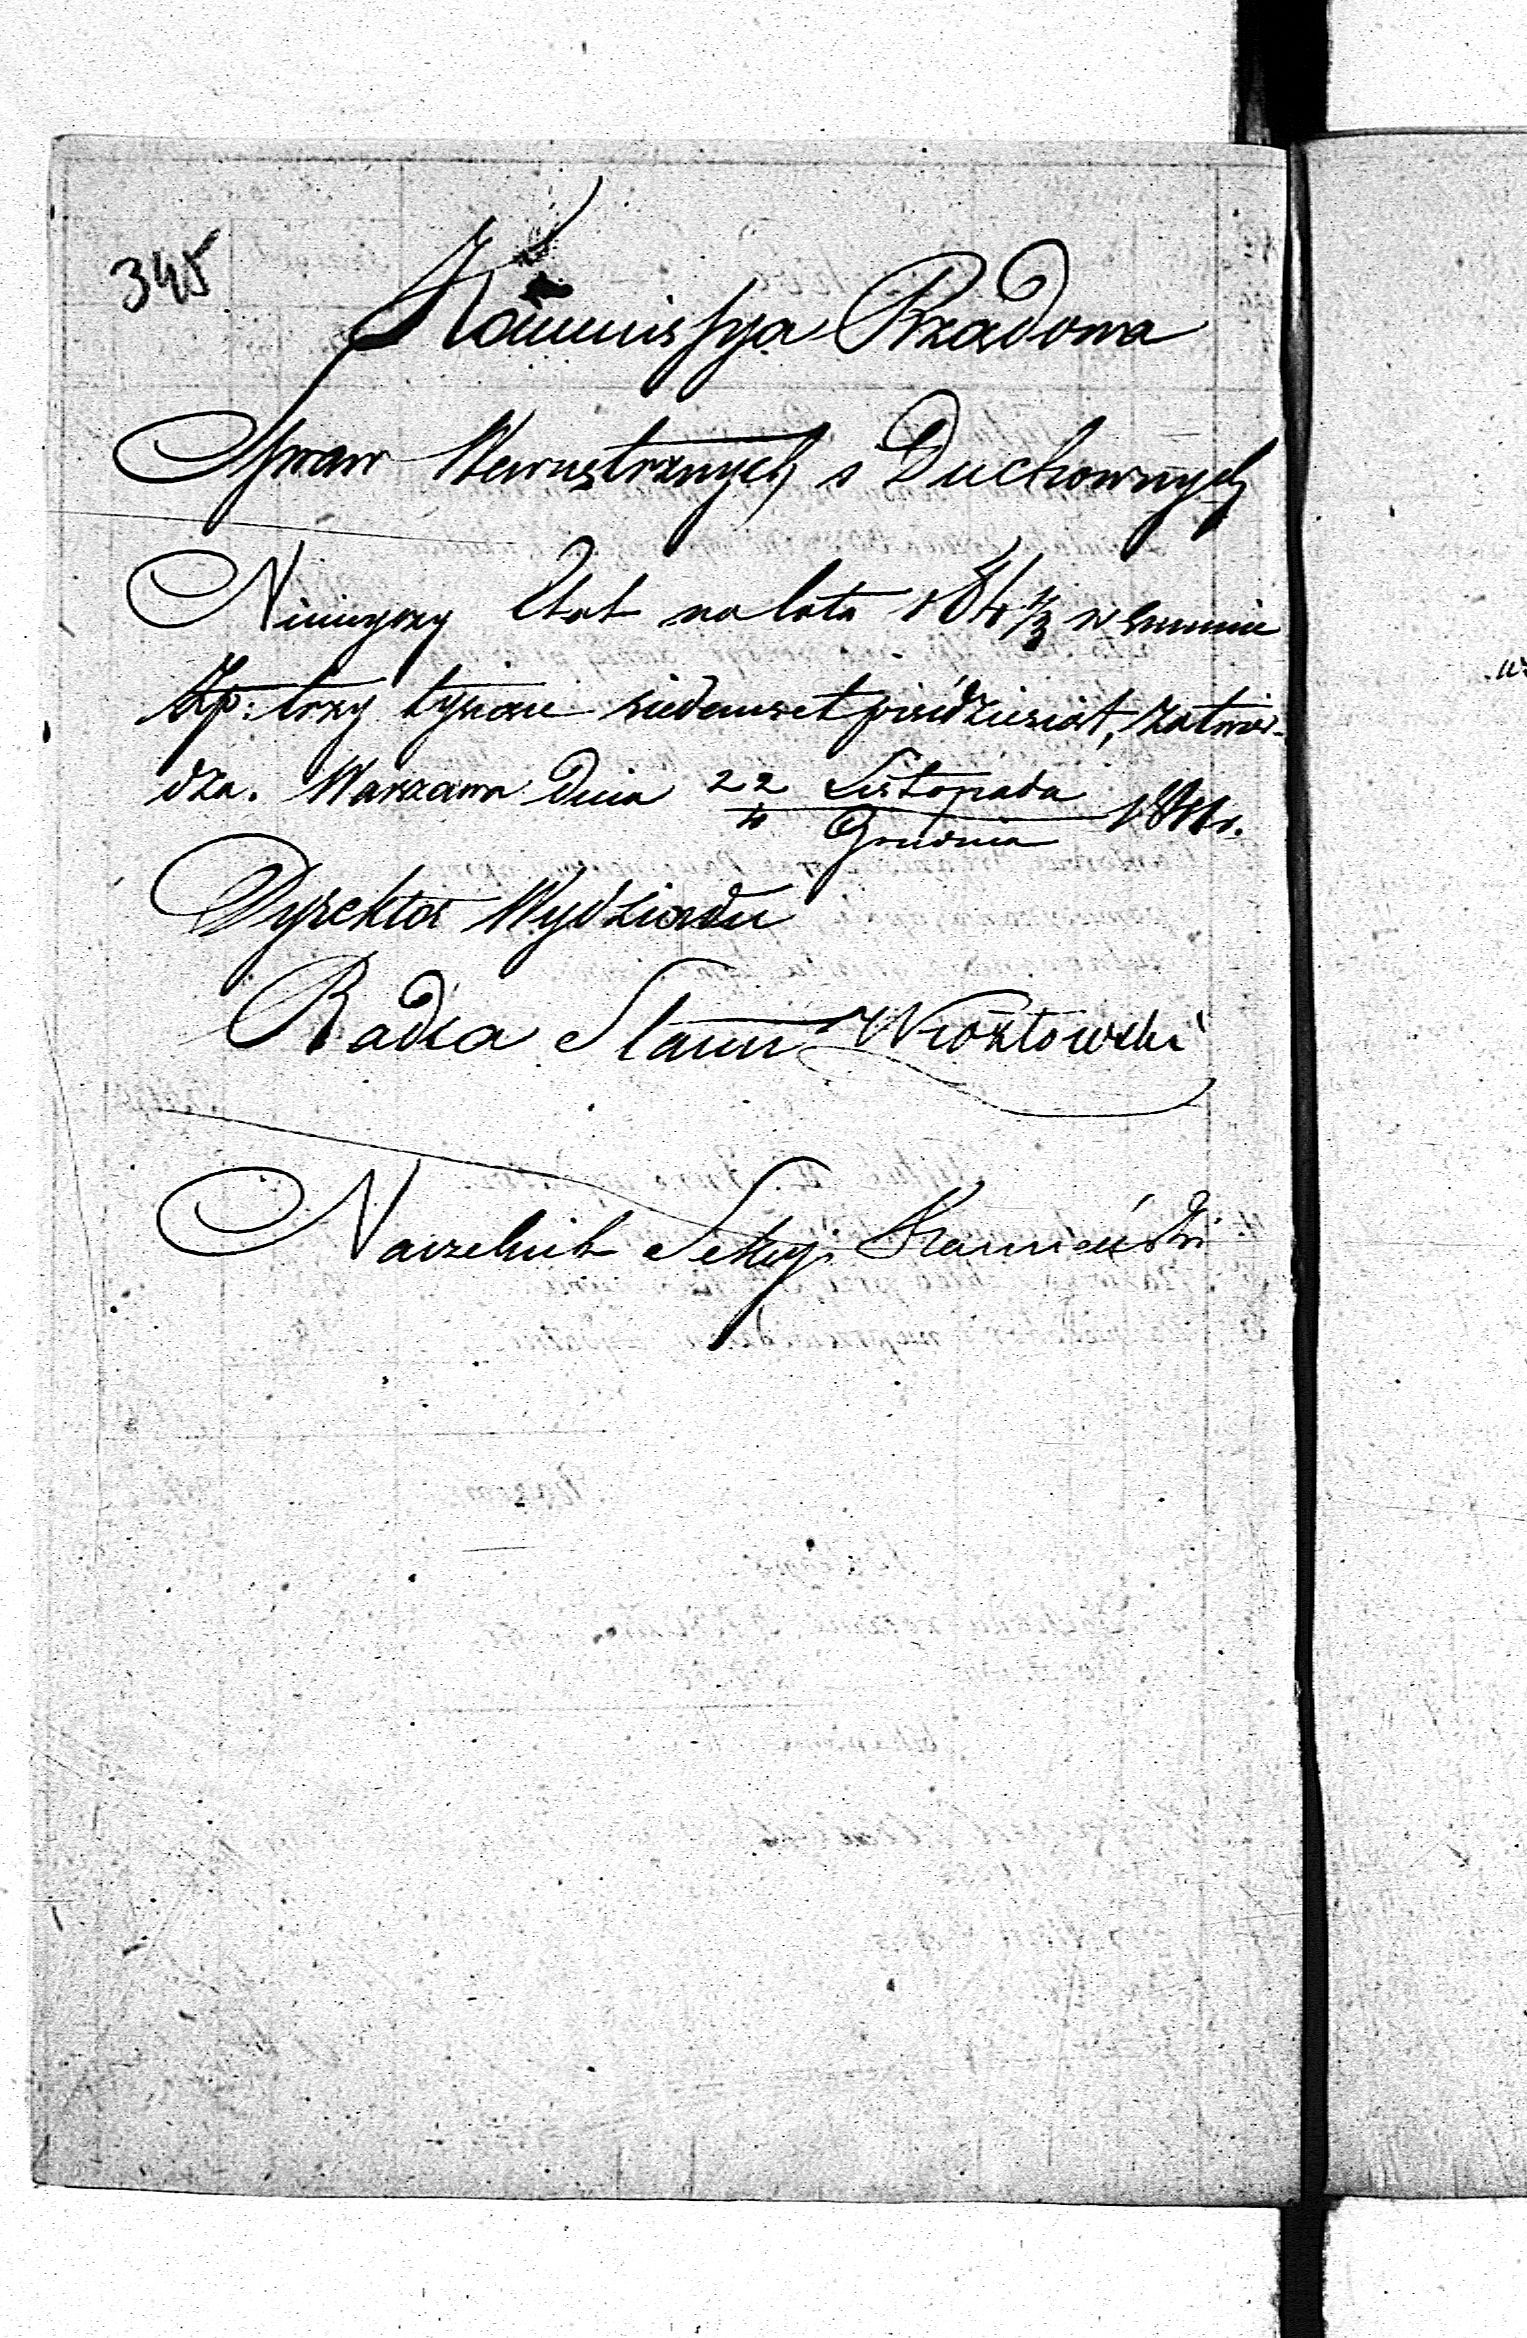 345
Kommissya Rządowa
Spraw Wewnętrznych i Duchownych
Niniejszy Etat na lata 184 1/3 w summie
Złp: trzy tysiące siedemset pięćdziesiąt, zatwier-
dza. Warszawa dnia 22 Listopada
4 Grudnia 1841 r.
Dyrektor Wydziału
Radca Stanu
Naczelnik Sekcyi Kamieński